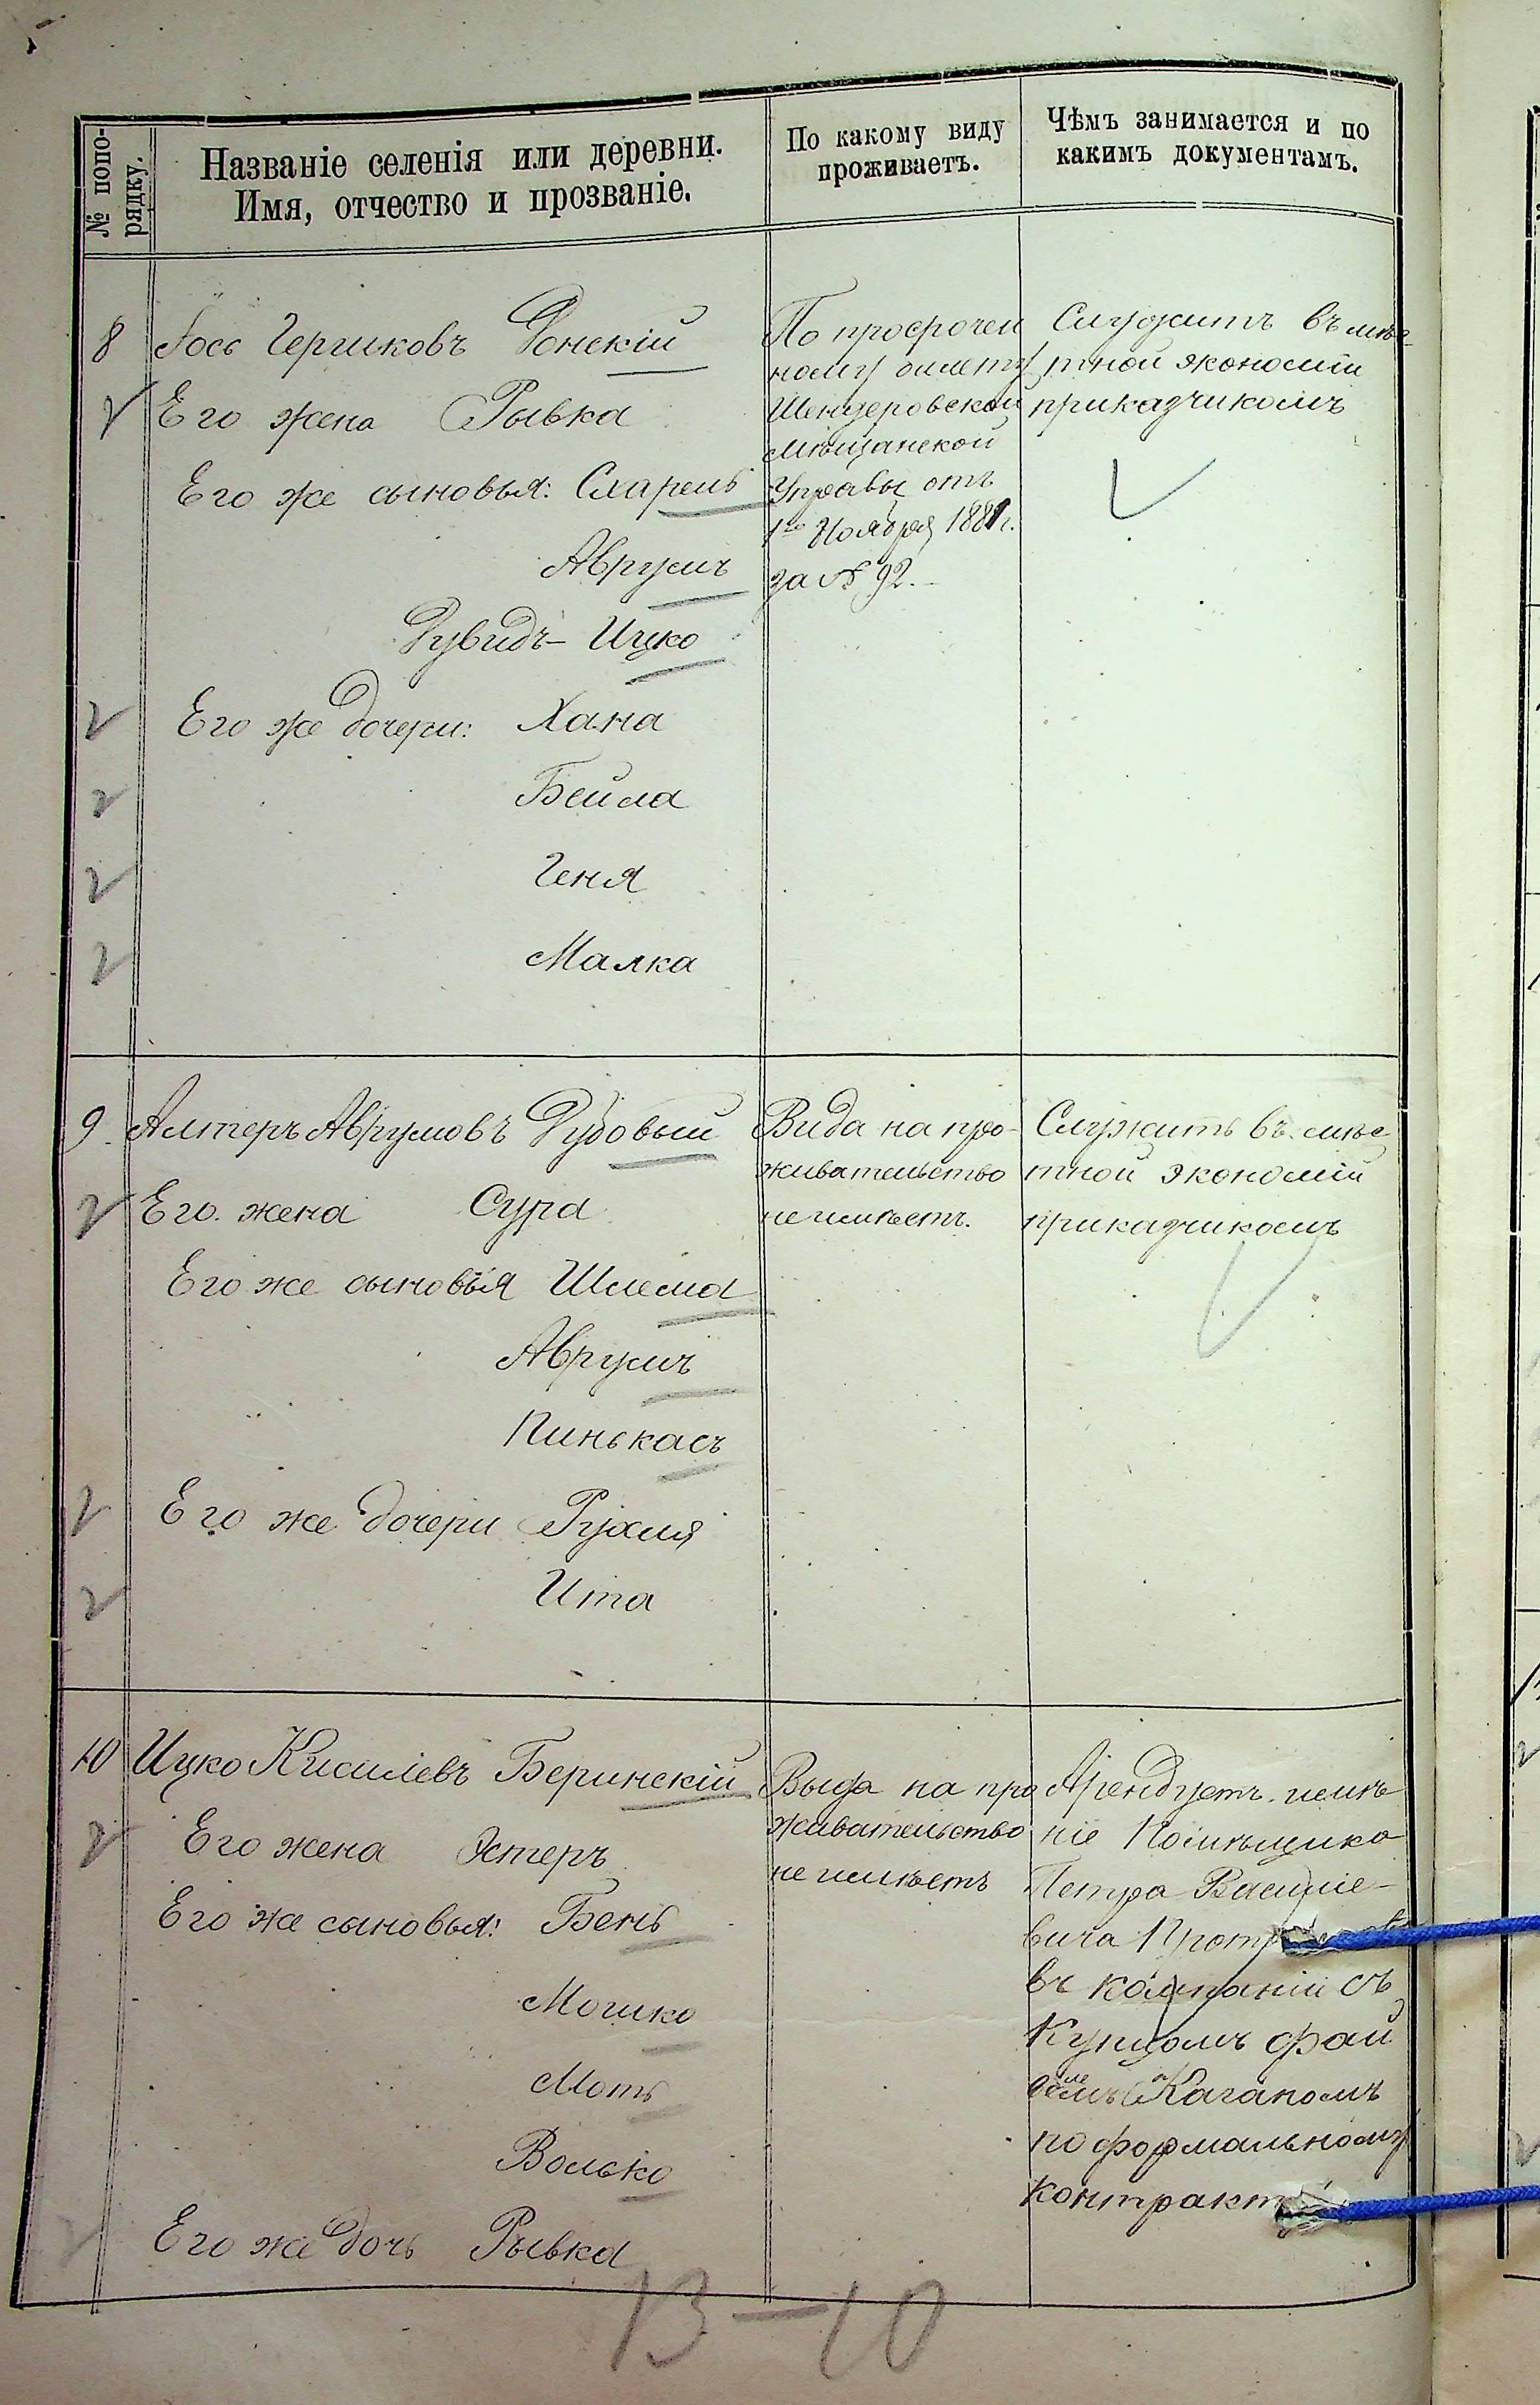 № попо-
рядку.
Названіе селенія или деревни.
Имя, отчество и прозваніе.
По какому виду
проживаетъ.
Чѣмъ занимается и по
какимъ документамъ.
8 Іось Гершковъ Донскій
Его жена Рывка
Его же сыновья: Схарень
Аврумъ
Рувидъ-Ицко
Его же дочери: Хана
Бейла
Геня
Малка
По просрочен
ному билету
мѣщанской
Управы отъ
1го Ноября 1881г.
за № 92.
Служитъ въ мѣс
тной экономіи
приказчикомъ
9 Алтеръ Аврумовъ Дубовый
Его жена Сура
Его же сыновья Шлема
Аврумъ
Пинькасъ
Его же дочери Рухля
Ита
Вида на про-
живательство
не имѣетъ.
Служитъ въ мѣс
тной экономіи
приказчикомъ
10 Ицко Киселевъ Беринскій
Его жена Эстеръ
Его же сыновья: Бень
Мошко
Моть
Волько
Его же дочь Рывка
Вида на про
живательство
не имѣетъ
Арендуетъ имѣ
ніе Помѣщика
Петра Василіе-
вича
въ компаніи съ
Купцомъ Фай
Каганомъ
по формальному
контракт
13-10